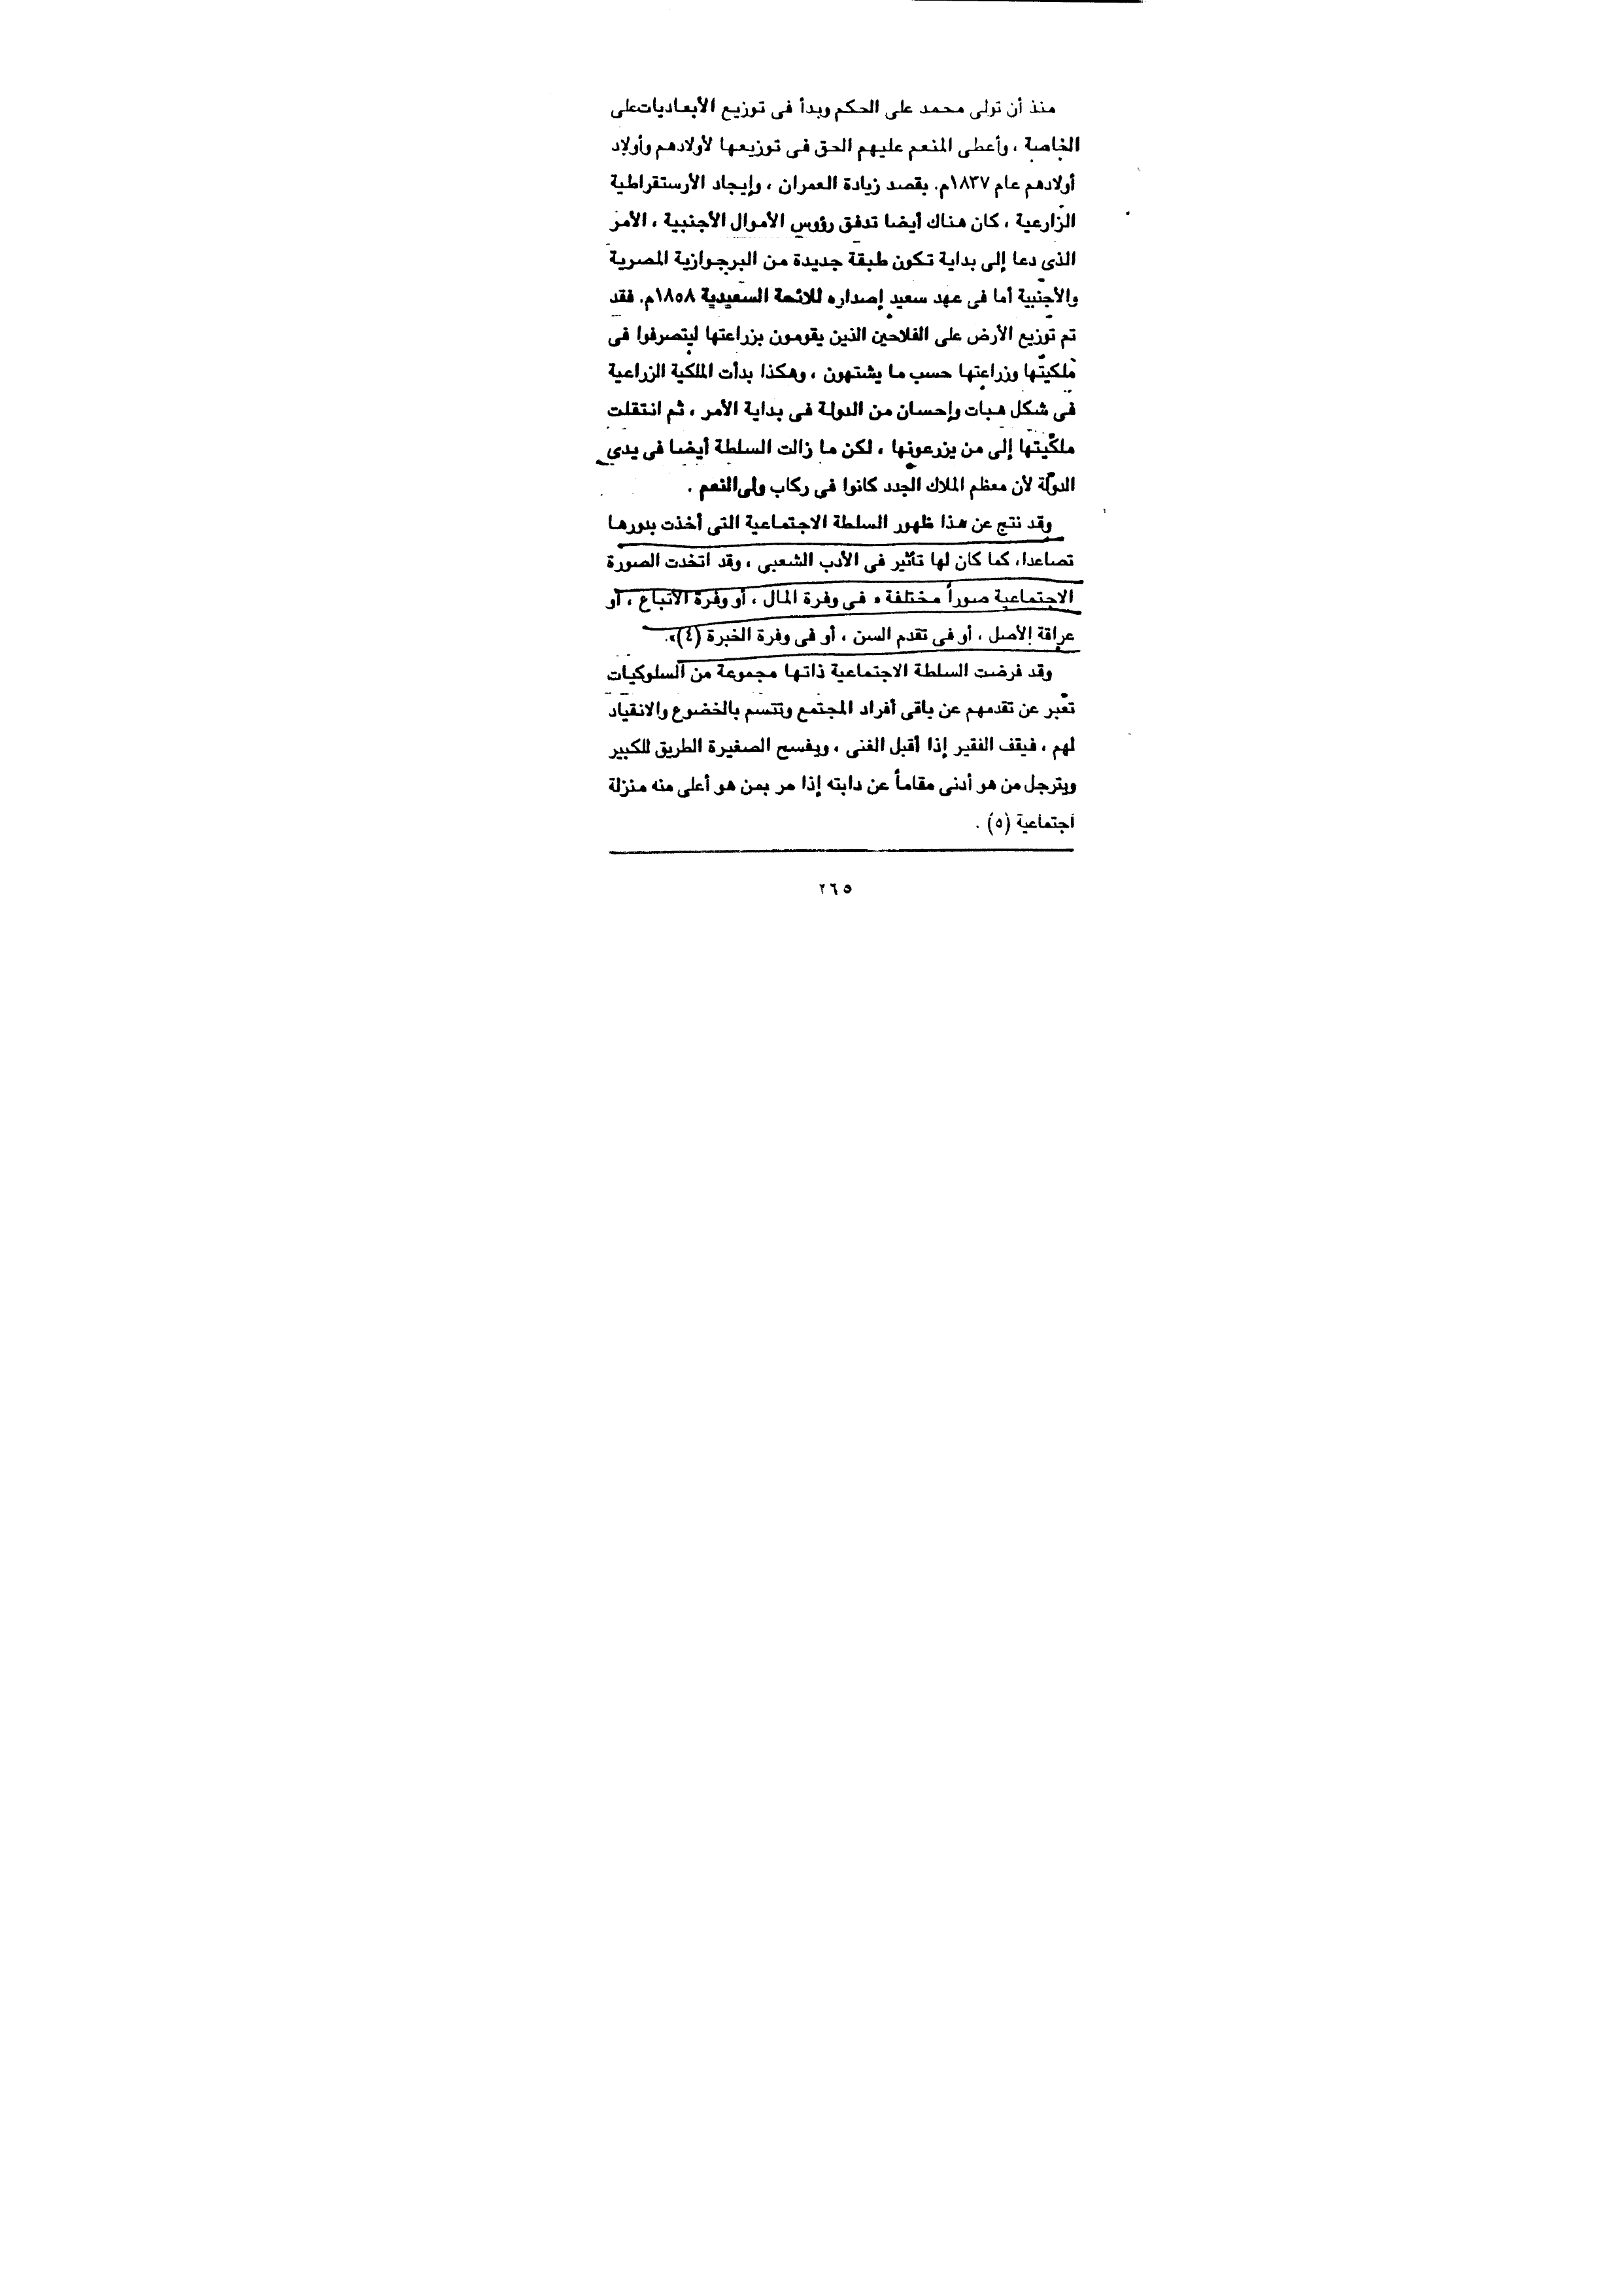 منذ أن تولى محمد على الحكم وبدأ فى توزيع الأبعاديات على
الخاصة ، وأعطى المنعم عليهم الحق فى توزيعها لأولادهم وأولاد
أولادهم عام ١٨٣٧م. بقصد زيادة العمران ، وإيجاد الأرستقراطية
الزارعية ، كان هناك أيضا تدفق رؤوس الأموال الأجنبية ، الأمر
الذى دعا إلى بداية تكون طبقة جديدة من البرجوازية المصرية
والأجنبية أما فى عهد سعيد إصداره للائحة السعيدية ١٨٥٨م. فقد
تم توزيع الأرض على الفلاحين الذين يقومون بزراعتها ليتصرفوا فى
ملكيتها وزراعتها حسب ما يشتهون ، وهكذا بدأت الملكية الزراعية
فى شكل هبات وإحسان من الدولة فى بداية الأمر ، ثم انتقلت
ملكيتها إلى من يزرعونها ، لكن ما زالت السلطة أيضا فى يدى
الدولة لأن معظم الملاك الجدد كانوا فى ركاب ولى النعم .
وقد نتج عن هذا ظهور السلطة الاجتماعية التى أخذت بدورها
تصاعدا، كما كان لها تأثير فى الأدب الشعبى ، وقد اتخدت الصورة
الاجتماعية صوراً مختلفة « فى وفرة المال ، أو وفرة الأتباع ، أو
عراقة الأصل ، أو فى تقدم السن ، أو فى وفرة الخبرة (٤)».
وقد فرضت السلطة الاجتماعية ذاتها مجموعة من السلوكيات
تعبر عن تقدمهم عن باقى أفراد المجتمع وتتسم بالخضوع والانقياد
لهم ، فيقف الفقير إذا أقبل الغنى ، ويفسح الصغيرة الطريق للكبير
ويترجل من هو أدنى مقاماً عن دابته إذا مر بمن هو أعلى منه منزلة
اجتماعية (٥) .
٢٦٥